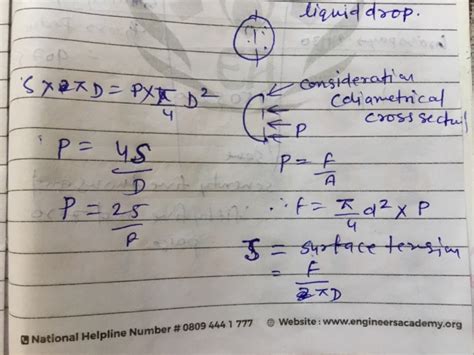 liquid drop.
S × π D = P × π/4 D²
consideration
(diametrical
cross section
P
P = 4S/D
P = F/A
P = 2S/r
∴ f = π/4 d² × P
S = surface tension
= F/πD
National Helpline Number # 0809 444 1 777
Website : www.engineersacademy.org